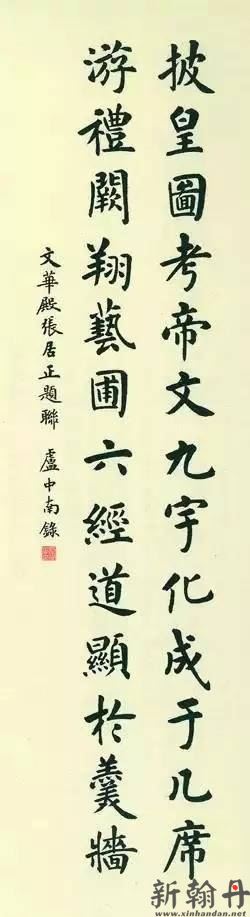 披皇圖考帝文九宇化成于几席
游禮闕翔藝圃六經道顯於羹牆
文華殿張居正題聯 盧中南錄
新翰丹
www.xinhandan.net